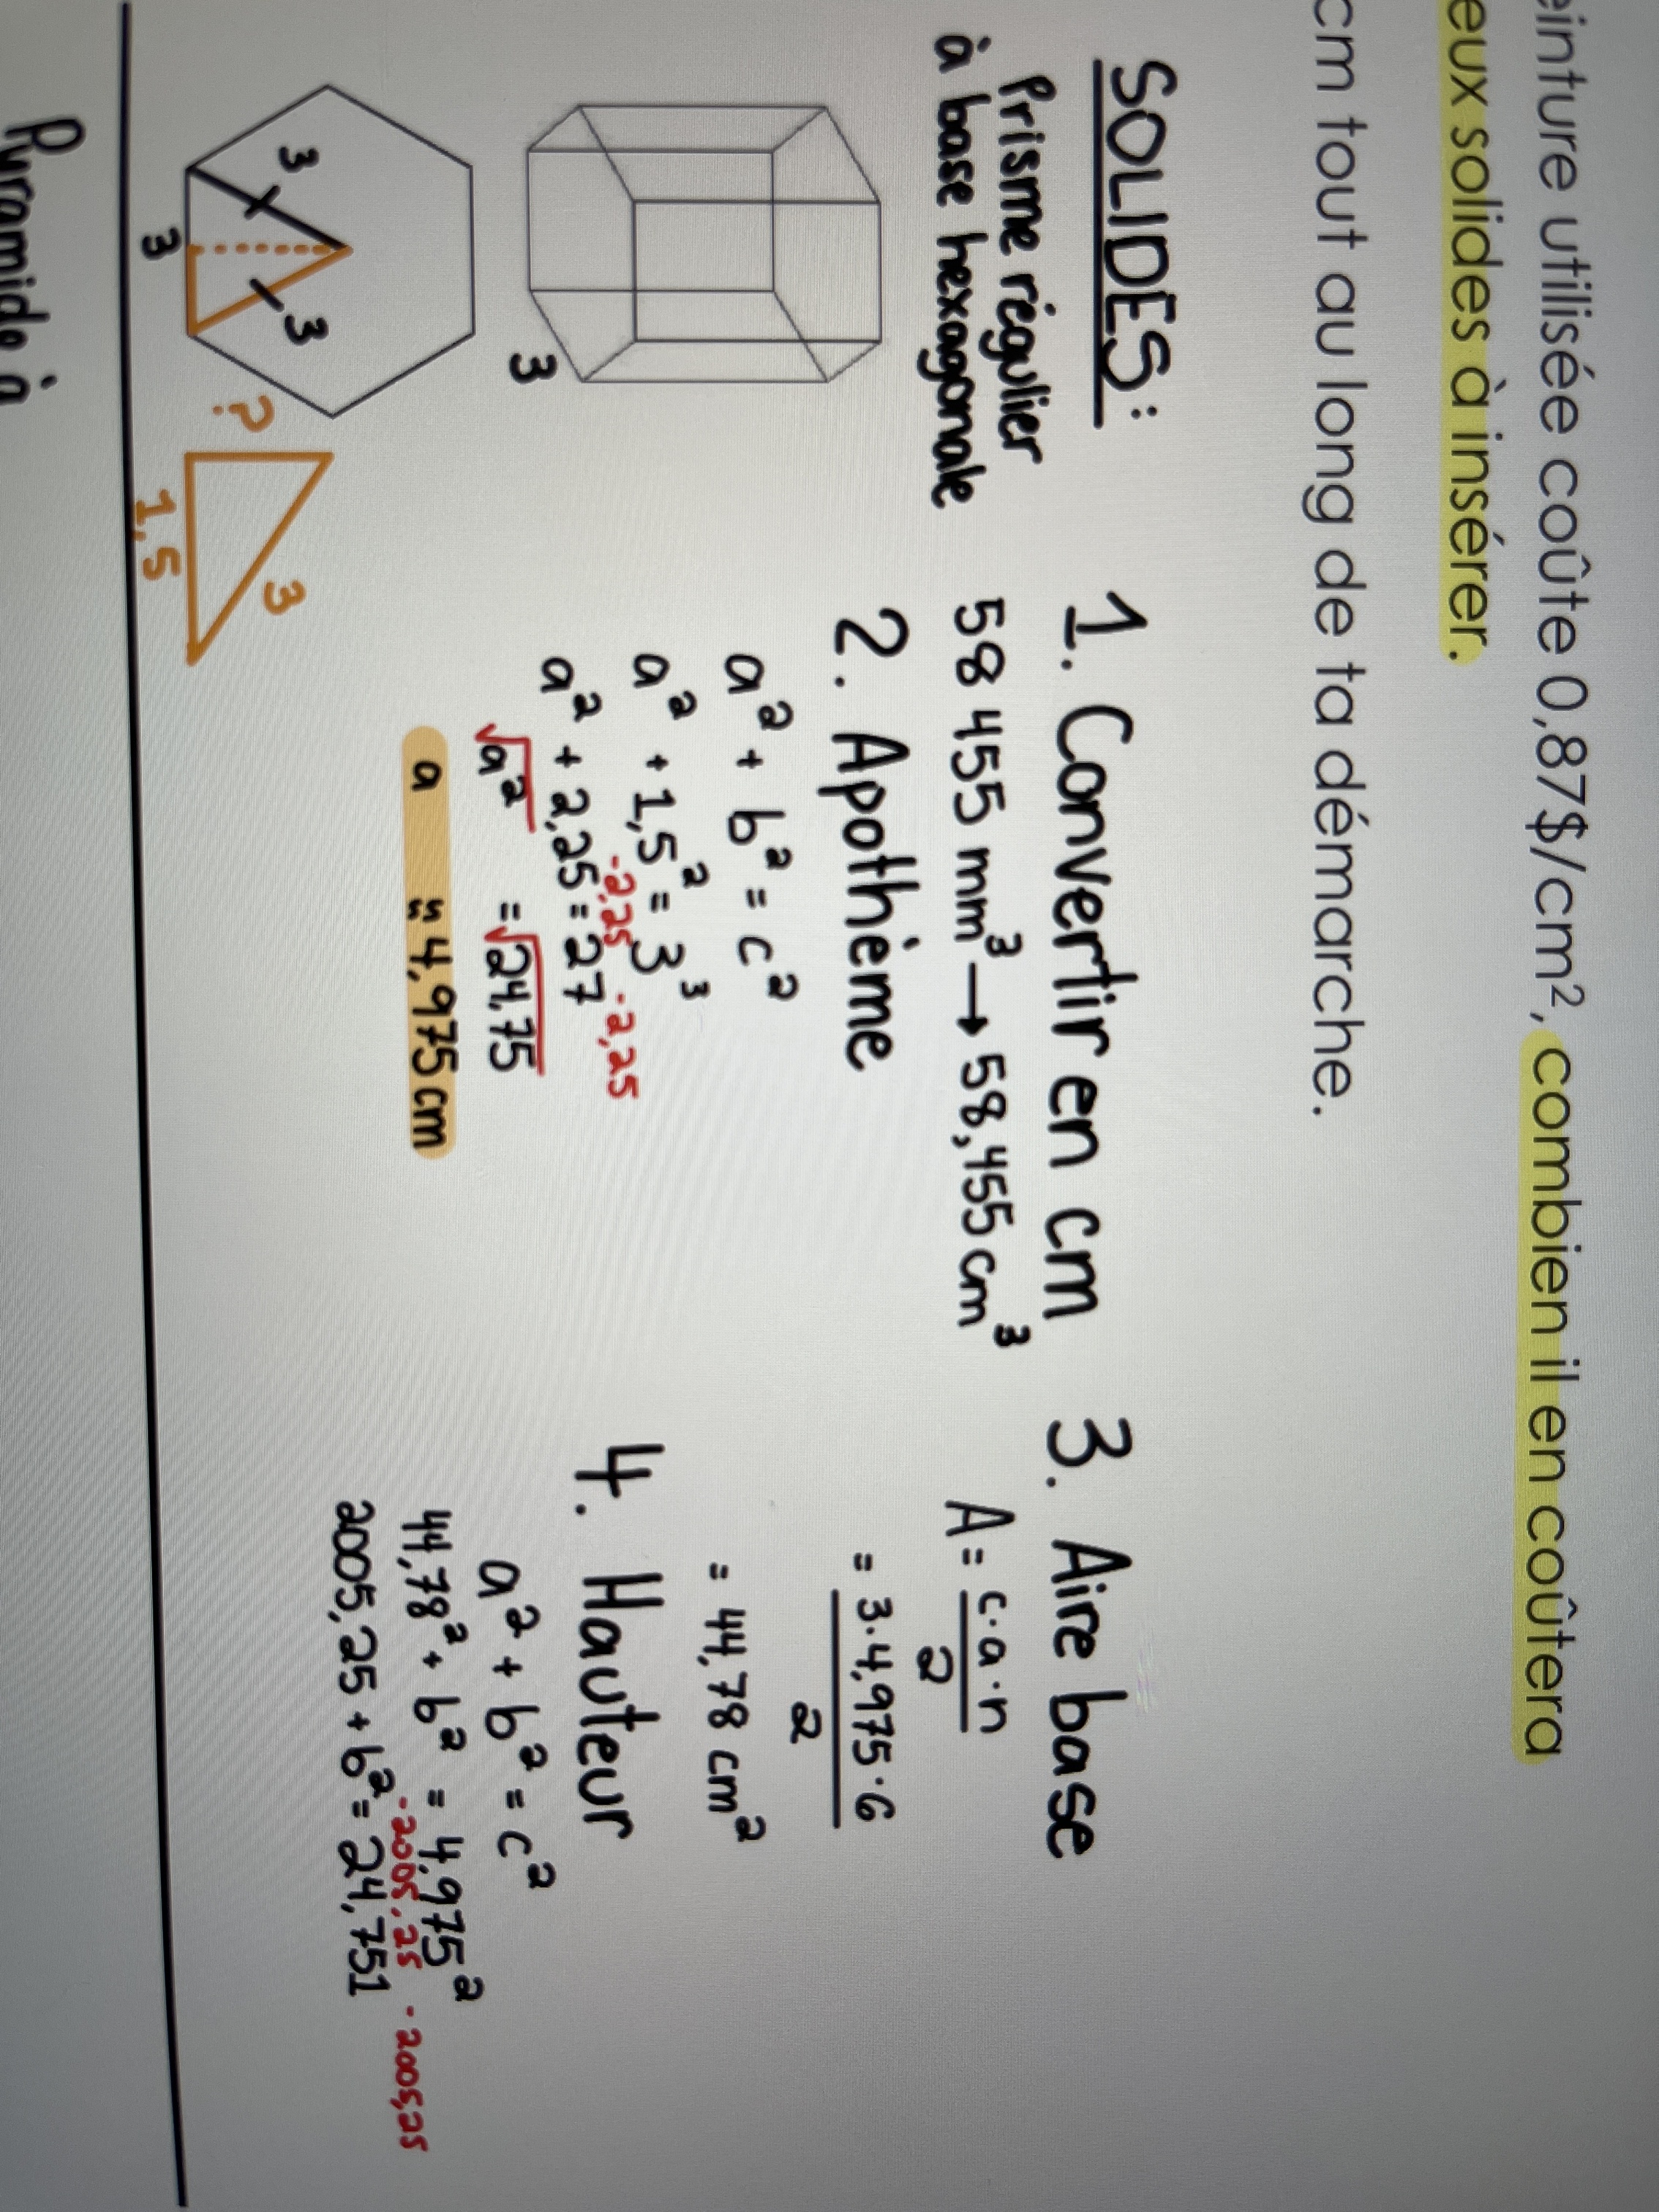 einture utilisée coûte 0,87$/cm², combien il en coûtera
eux solides à insérer.
cm tout au long de ta démarche.
SOLIDES:
Prisme régulier
à base hexagonale
3
3
3
3
?
3
1,5
1. Convertir en cm
58 455 mm³ → 58,455 cm³
2. Apothème
a² + b² = c²
a² + 1,5² = 3³
-2,25 -2,25
a² + 2,25 = 27
√a² = √24,75
a ≈ 4,975 cm
3. Aire base
A = c·a·n
2
= 3·4,975·6
2
= 44,78 cm²
4. Hauteur
a² + b² = c²
44,78² + b² = 4,975²
-2005,25 -2005,25
2005,25 + b² = 24,751
Pyramide à